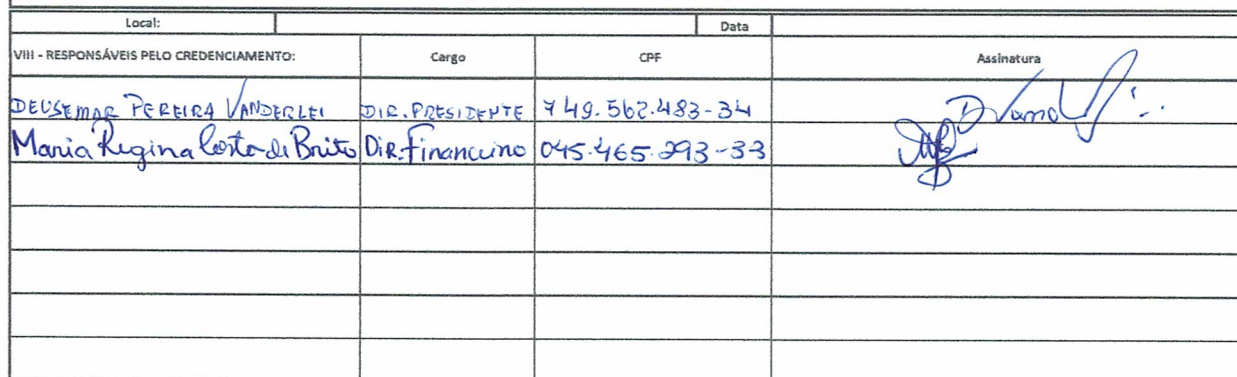 Local: Data
VIII - RESPONSÁVEIS PELO CREDENCIAMENTO: Cargo CPF Assinatura
DEUSEMAR PEREIRA VANDERLEI DIR. PRESIDENTE 749.562.483-34
Maria Regina Costa de Brito DIR. Financeiro 045.465.293-33